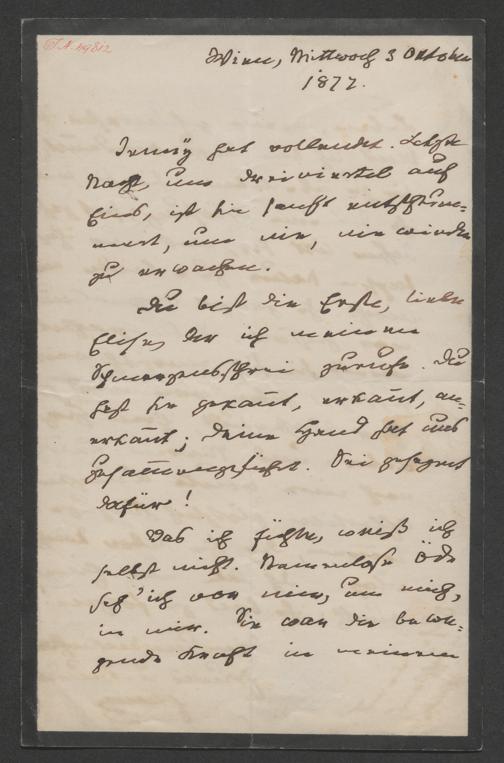 I.N. 49812
Wien, Mittwoch 3 Oktober
1877.
Jenny hat vollendet. Letzte
Nacht, um dreiviertel auf
Eins, ist sie sanft entschlum-
mert, um nie, nie wieder
zu erwachen.
Du bist die Erste, liebe
Elise, der ich meinen
Schmerzensschrei zurufe. Du
hast sie gekannt, erkannt, an-
erkannt; Deine Hand hat uns
zusammengeführt. Sei gesegnet
dafür!
Was ich fühle, weiß ich
selbst nicht. Namenlose Öde
seh' ich vor mir, um mich,
in mir. Sie war die bewe-
gende Kraft in meinem